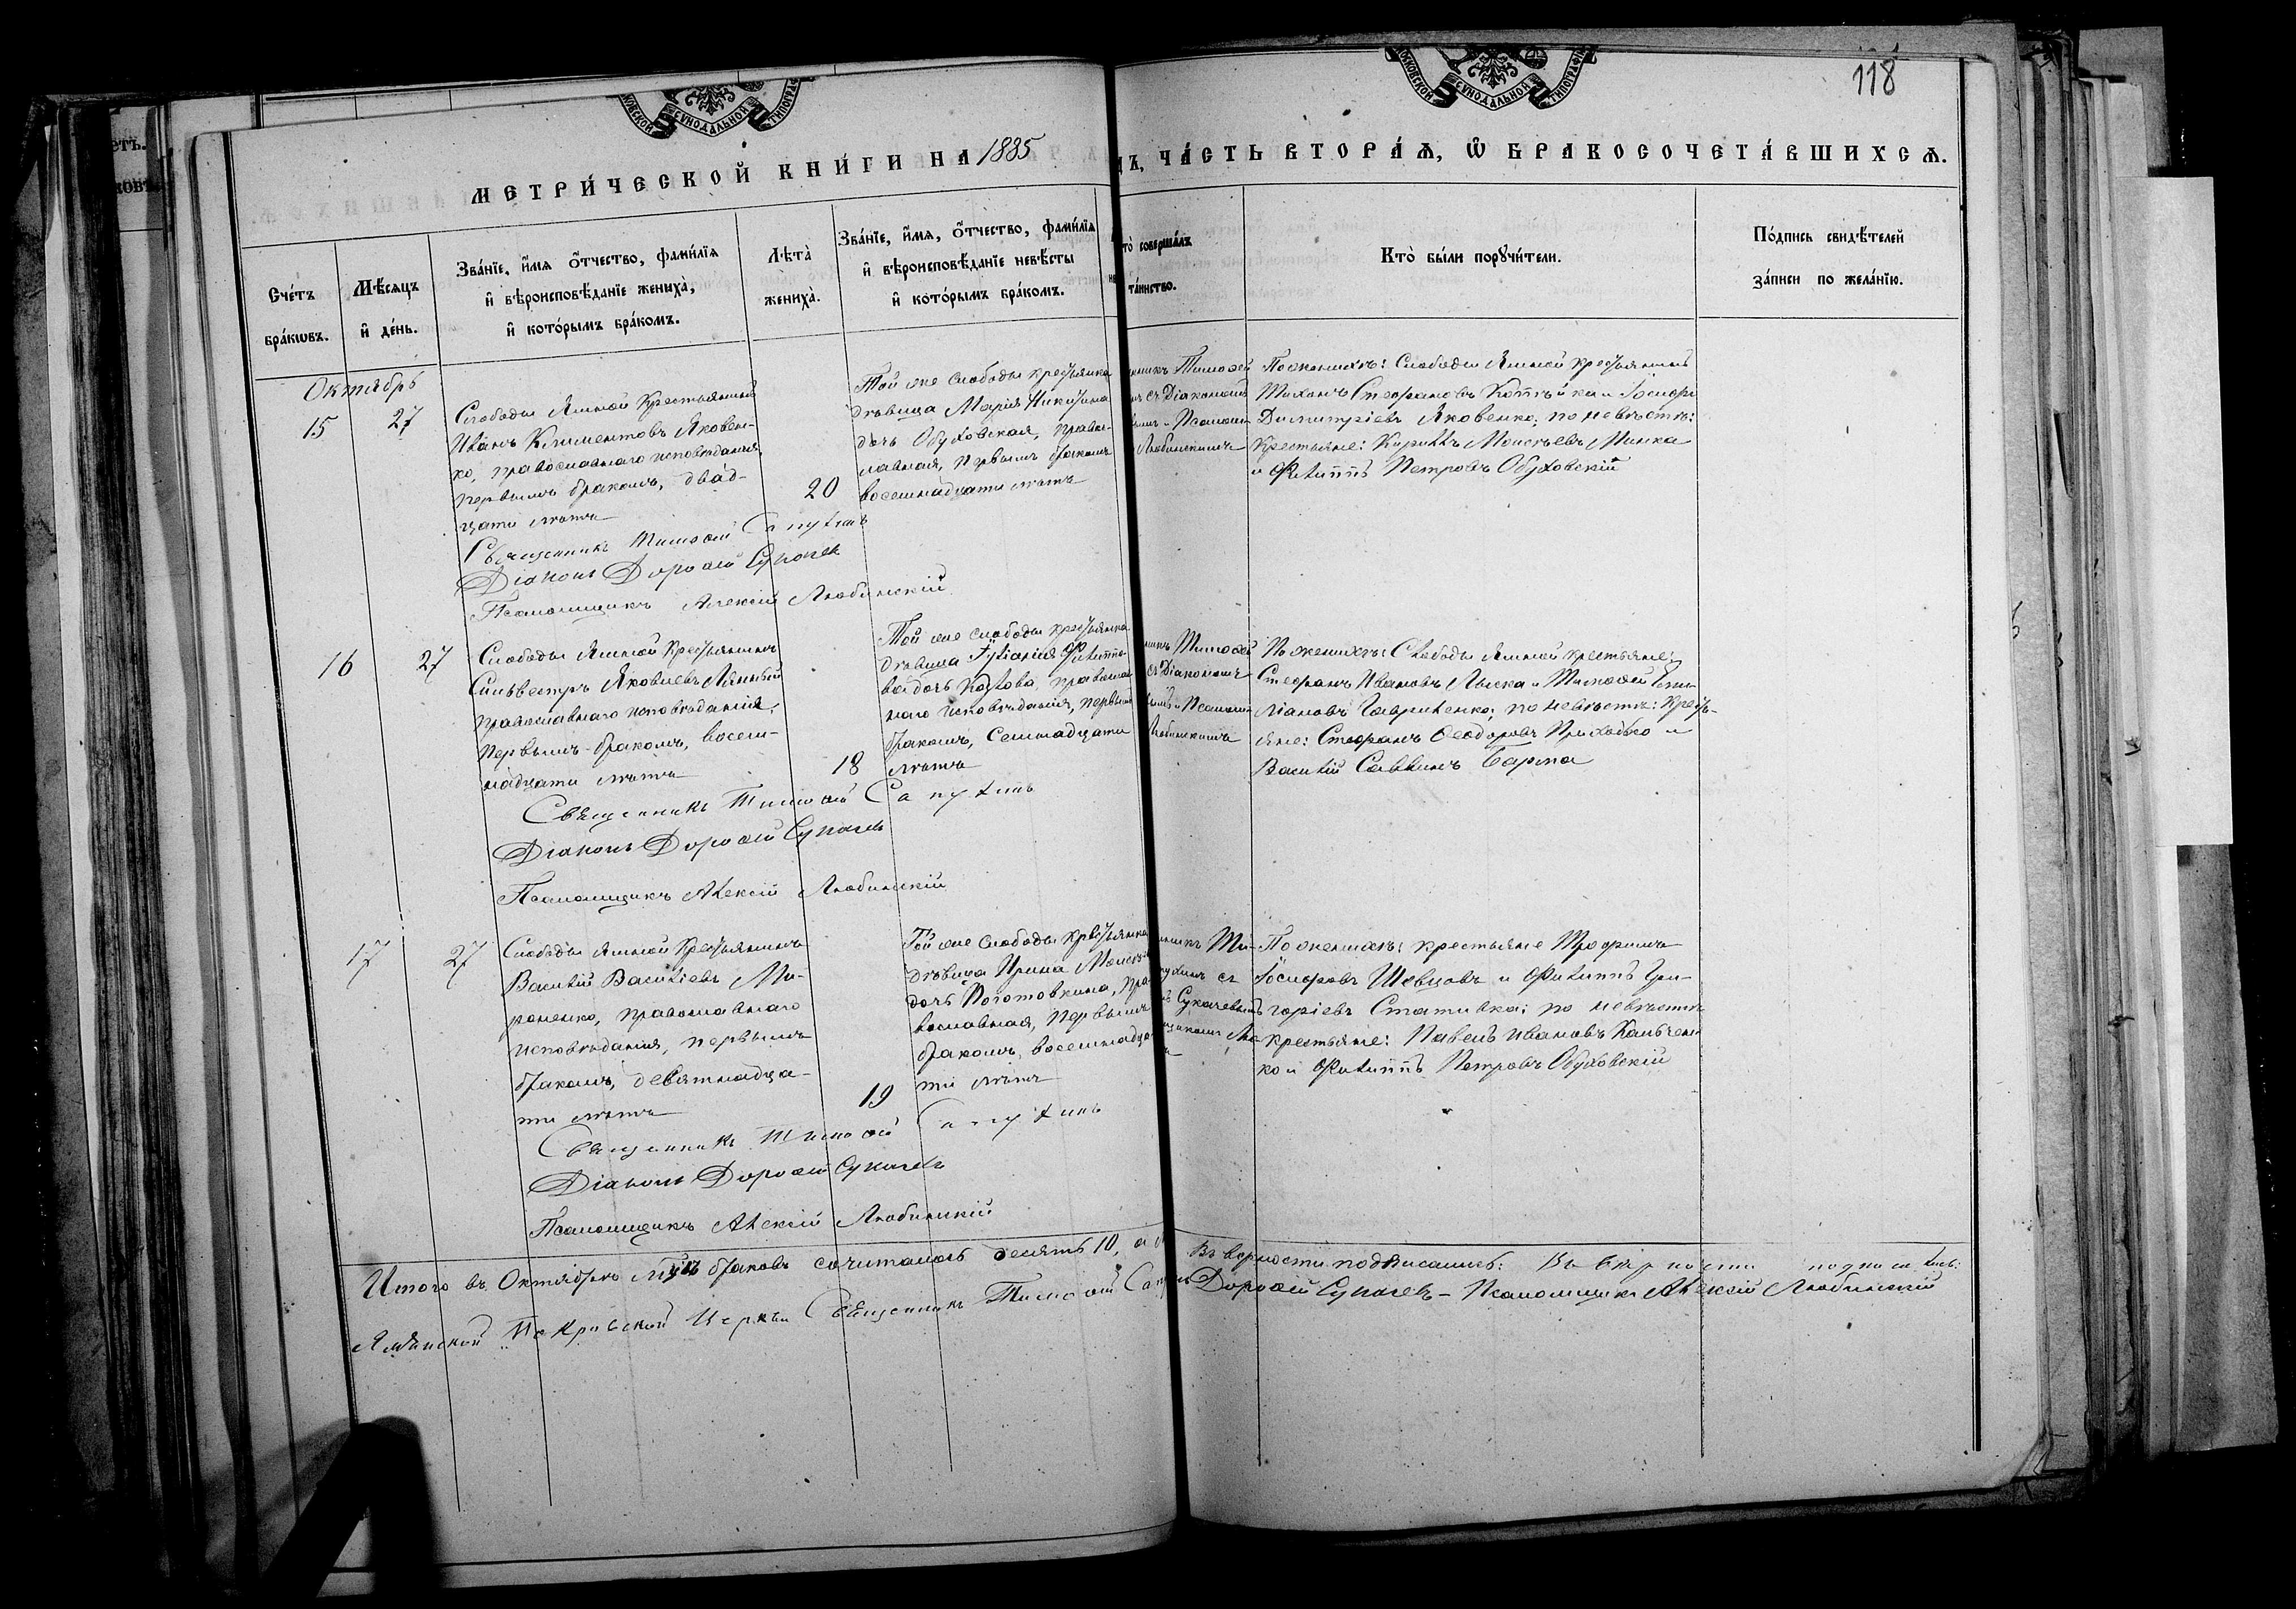 118
МЕТРИ́ЧЕСКОЙ КНИ́ГИ НА 1885
ЧА́СТЬ ВТОРА́Ѧ, Ѽ БРАКОСОЧЕТА́ВШИХСѦ.
Сче́тъ бра́кωвъ.
Мѣ́сѧцъ и҆ де́нь.
Зва́нїе, и҆́мѧ ѻ҆́тчество, фами́лїѧ и҆ вѣроисповѣ́данїе жениха̀, и҆ кото́рымъ бра́комъ.
Лѣта̀ жениха̀.
Зва́нїе, и҆́мѧ, ѻ҆́тчество, фами́лїѧ и҆ вѣроисповѣ́данїе невѣ́сты и҆ кото́рымъ бра́комъ.
соверша́лъ та́инство.
Кто̀ бы́ли порꙋчи́тели.
По́дпись свидѣ́телей за́писи по жела́нїю.
Октябрь
15
27
Слободы Ямной Крестьянинъ
Иванъ Климентовъ Яковен-
ко, православнаго исповѣданія,
первымъ бракомъ, двад-
цати лѣтъ
20
Той же слободы крестьянка
дѣвица Марія Никитина
дочь Обуховская, право-
славная, первымъ бракомъ
восемнадцати лѣтъ
Тимоѳей
съ Діакономъ
и Псалом
Любинскимъ
По женихѣ: Слободы Ямной крестьянинъ
Тихонъ Стефановъ и Іосифъ
Димитріевъ Яковенко; по невѣстѣ:
Крестьяне: Кириллъ Моисѣевъ Минка
и Филиппъ Петровъ Обуховскій
Священникъ Тимоѳей Сапухинъ
Діаконъ Дороѳей Сукачев
Псаломщикъ Алексій Любинскій
16
27
Слободы Ямной Крестьянинъ
Сильвестръ Яковлевъ
православнаго исповѣданія,
первымъ бракомъ, восем-
надцати лѣтъ
18
Той же слободы крестьянка
дѣвица Іуліанія Филиппо-
ва дочь православ
наго исповѣданія, первымъ
бракомъ, семнадцати
лѣтъ
Тимоѳей
съ Діакономъ
и Псалом
Любинскимъ
По женихѣ: Слободы Ямной крестьяне:
Стефанъ Ивановъ и Тимоѳей
Гавриленко; по невѣстѣ: Кресть-
яне: Стефанъ Ѳеодоровъ Приходько и
Василій Саввинъ Барма
Священникъ Тимоѳей Сапухинъ
Діаконъ Дороѳей Сукачев
Псаломщикъ Алексій Любинскій
17
27
Слободы Ямной Крестьянинъ
Василій Василіевъ Ми-
роненко, православнаго
исповѣданія, первымъ
бракомъ, девятнадца-
ти лѣтъ
19
Той же слободы крестьянка
дѣвица Ирина
дочь пра-
вославная, первымъ
бракомъ, восемнадца-
ти лѣтъ
Ти-
съ
Сукачевымъ
По женихѣ: крестьяне Трофимъ
Іосифовъ Шевцовъ и Филиппъ Гри-
горіевъ Стативка; по невѣстѣ
крестьяне: Павелъ Ивановъ Кальчен
ко и Филиппъ Петровъ Обуховскій
Священникъ Тимоѳей Сапухинъ
Діаконъ Дороѳей Сукачевъ
Псаломщикъ Алексій Любинскій
Итого въ Октябрѣ м-цѣ браковъ сочиталось десять 10,
Въ вѣрности подписались: Въ вѣрности подписались:
Ямянской Покровской Церкви Священникъ Тимоѳей
Дороѳей Сукачевъ – Псаломщикъ Алексій Любинскій